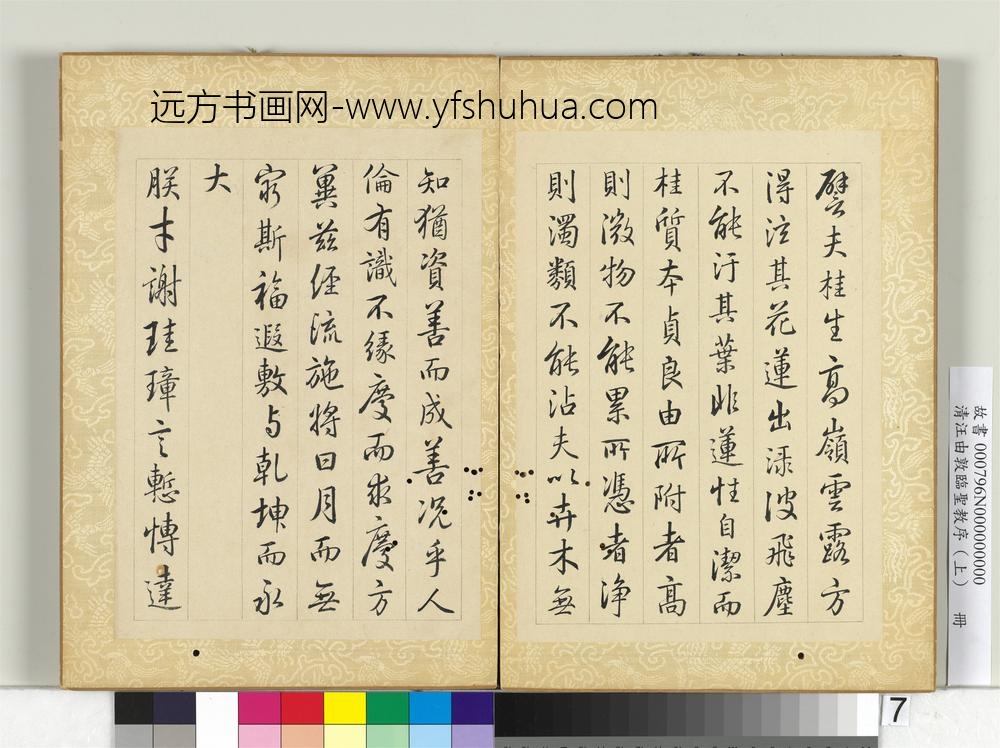 远方书画网-www.yfshuhua.com
譬夫桂生高嶺雲露方
得泫其花蓮出淥波飛塵
不能汙其葉非蓮性自潔而
桂質本貞良由所附者高
則微物不能累所憑者浄
則濁類不能沾夫以卉木無
知猶資善而成善况乎人
倫有識不緣慶而求慶方
冀兹経流施将日月而無
窮斯福遐敷与乾坤而永
大
朕才謝珪璋言慙博達
故書 000796N000000000
清汪由敦臨聖教序(上) 冊
7